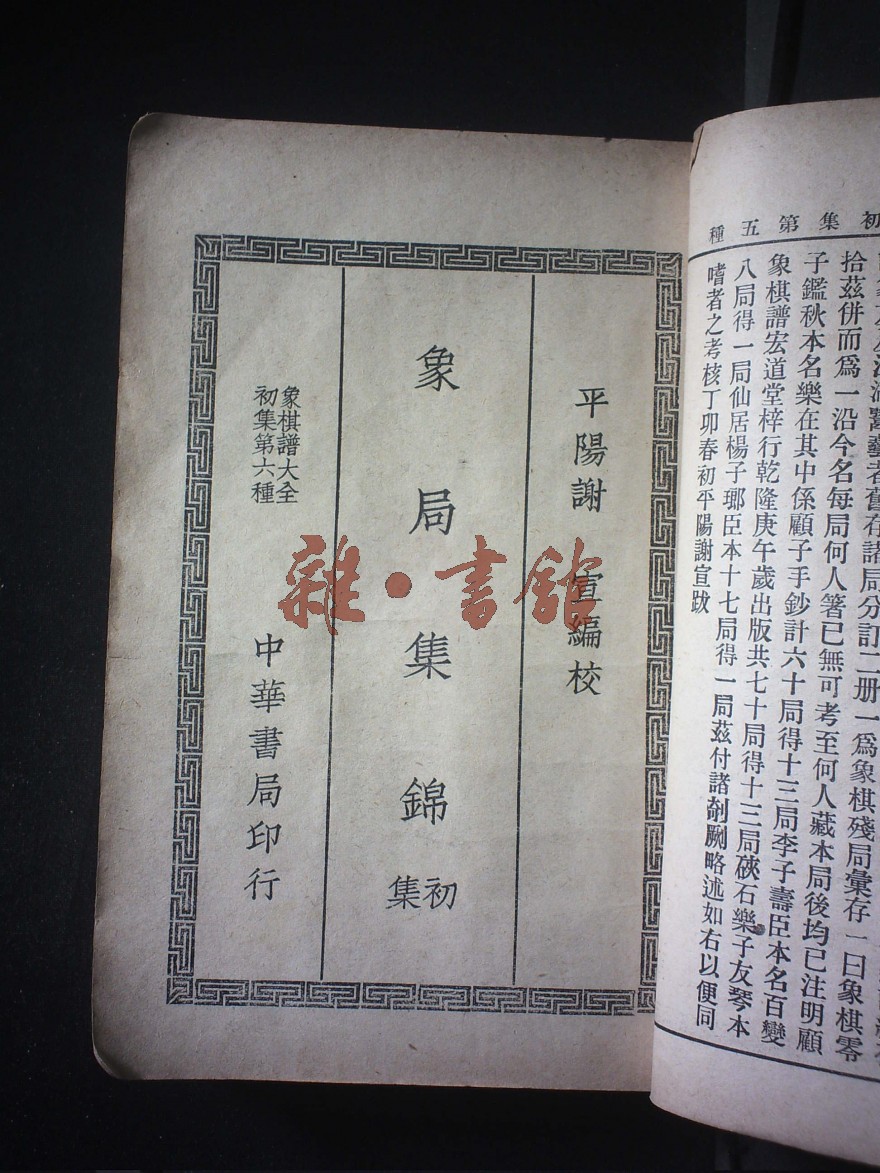 初集第五種
拾茲併而爲一沿今名每局何人箸已無可考至何人藏本局後均已注明顧
子鑑秋本名樂在其中係顧子手鈔計六十局得十三局李子壽臣本名百變
象棋譜宏道堂梓行乾隆庚午歲出版共七十局得十三局硤石樂子友琴本
八局得一局仙居楊子瑯臣本十七局得一局茲付諸剞劂略述如右以便同
嗜者之考核丁卯春初平陽謝宣跋
藝者舊存諸局分訂二册一爲象棋殘局彙存一曰象棋零
平陽謝宣編校
象局集錦初集
象棋譜大全
初集第六種
中華書局印行
雜·書館